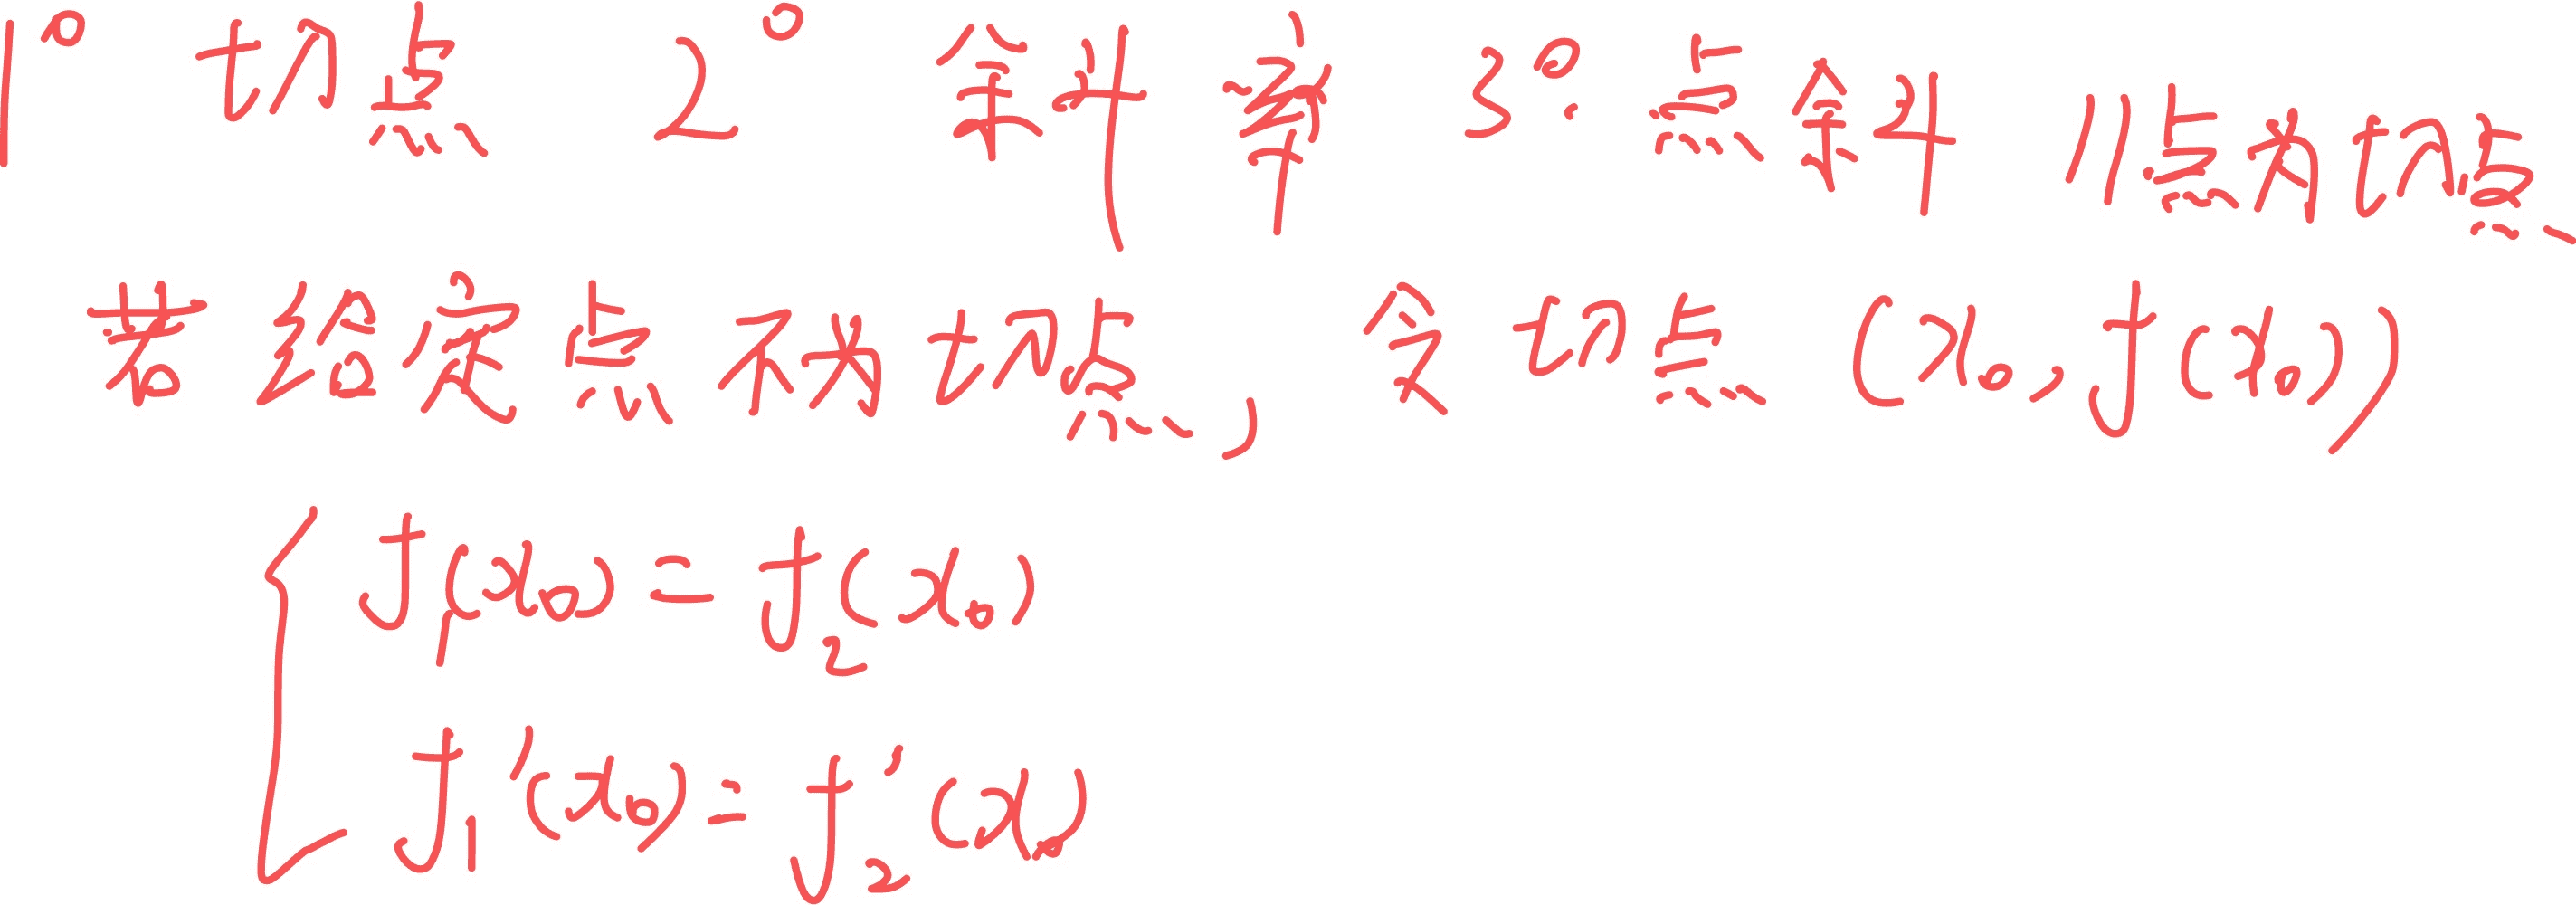 1° 切点 2° 斜率 3°. 点斜 //点为切点
若给定点不为切点, 令切点 (x₀, f(x₀))
f₁(x₀) = f₂(x₀)
f₁'(x₀) = f₂'(x₀)